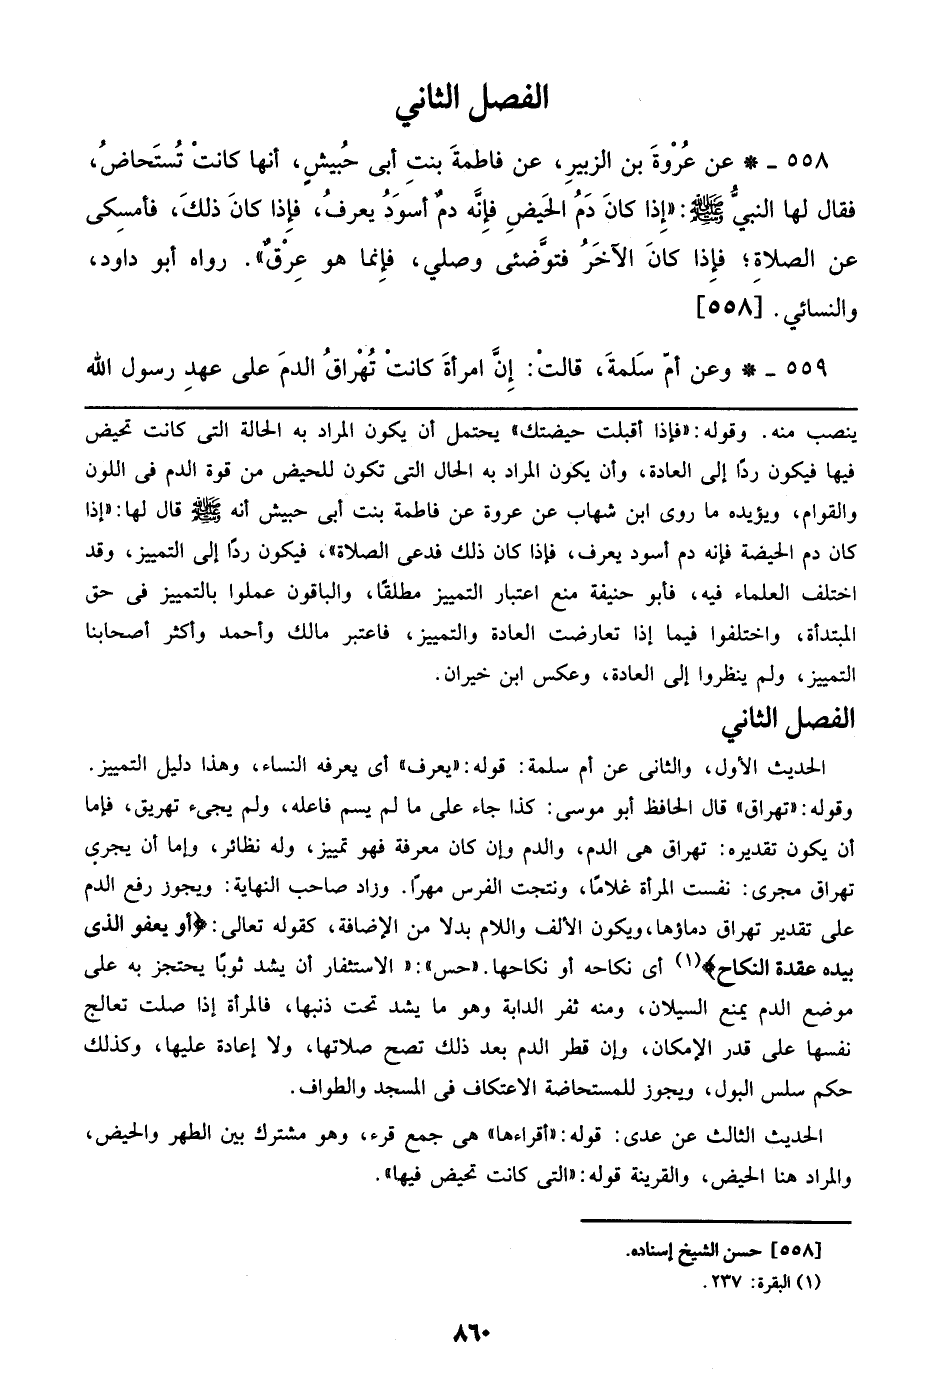 الفصل الثاني
٥٥٨ ـ * عن عُرْوةَ بن الزبيرِ، عن فاطمةَ بنتِ أبى حُبيشٍ، أنها كانتْ تُستَحاضُ،
فقال لها النبيُّ ﷺ: «إذا كانَ دَمُ الحَيضِ فإنَّه دمٌ أسودُ يعرفُ، فإذا كانَ ذلكَ، فأمسِكى
عن الصلاةِ؛ فإذا كانَ الآخَرُ فتوضَّئى وصلي، فإنما هو عِرْقٌ». رواه أبو داود،
والنسائي. [٥٥٨]
٥٥٩ ـ * وعن أمّ سَلمةَ، قالتْ: إنَّ امرأةَ كانتْ تُهْراقُ الدمَ على عهدِ رسول الله
ينصب منه. وقوله: «فإذا أقبلت حيضتك» يحتمل أن يكون المراد به الحالة التى كانت تحيض
فيها فيكون ردًا إلى العادة، وأن يكون المراد به الحال التى تكون للحيض من قوة الدم فى اللون
والقوام، ويؤيده ما روى ابن شهاب عن عروة عن فاطمة بنت أبى حبيش أنه ﷺ قال لها: «إذا
كان دم الحيضة فإنه دم أسود يعرف، فإذا كان ذلك فدعى الصلاة»، فيكون ردًا إلى التمييز، وقد
اختلف العلماء فيه، فأبو حنيفة منع اعتبار التمييز مطلقًا، والباقون عملوا بالتمييز فى حق
المبتدأة، واختلفوا فيما إذا تعارضت العادة والتمييز، فاعتبر مالك وأحمد وأكثر أصحابنا
التمييز، ولم ينظروا إلى العادة، وعكس ابن خيران.
الفصل الثاني
الحديث الأول، والثانى عن أم سلمة: قوله: «يعرف» أى يعرفه النساء، وهذا دليل التمييز.
وقوله: «تهراق» قال الحافظ أبو موسى: كذا جاء على ما لم يسم فاعله، ولم يجىء تهريق، فإما
أن يكون تقديره: تهراق هى الدم، والدم وإن كان معرفة فهو تمييز، وله نظائر، وإما أن يجرى
تهراق مجرى: نفست المرأة غلامًا، ونتجت الفرس مهرًا. وزاد صاحب النهاية: ويجوز رفع الدم
على تقدير تهراق دماؤها، ويكون الألف واللام بدلا من الإضافة، كقوله تعالى: ﴿أو يعفو الذى
بيده عقدة النكاح﴾(١) أى نكاحه أو نكاحها. «حس»: « الاستثفار أن يشد ثوبًا يحتجز به على
موضع الدم يمنع السيلان، ومنه ثفر الدابة وهو ما يشد تحت ذنبها، فالمرأة إذا صلت تعالج
نفسها على قدر الإمكان، وإن قطر الدم بعد ذلك تصح صلاتها، ولا إعادة عليها، وكذلك
حكم سلس البول، ويجوز للمستحاضة الاعتكاف فى المسجد والطواف.
الحديث الثالث عن عدى: قوله: «أقراءها» هى جمع قرء، وهو مشترك بين الطهر والحيض،
والمراد هنا الحيض، والقرينة قوله: «التى كانت تحيض فيها».
[٥٥٨] حسن الشيخ إسناده.
(١) البقرة: ٢٣٧.
٨٦٠